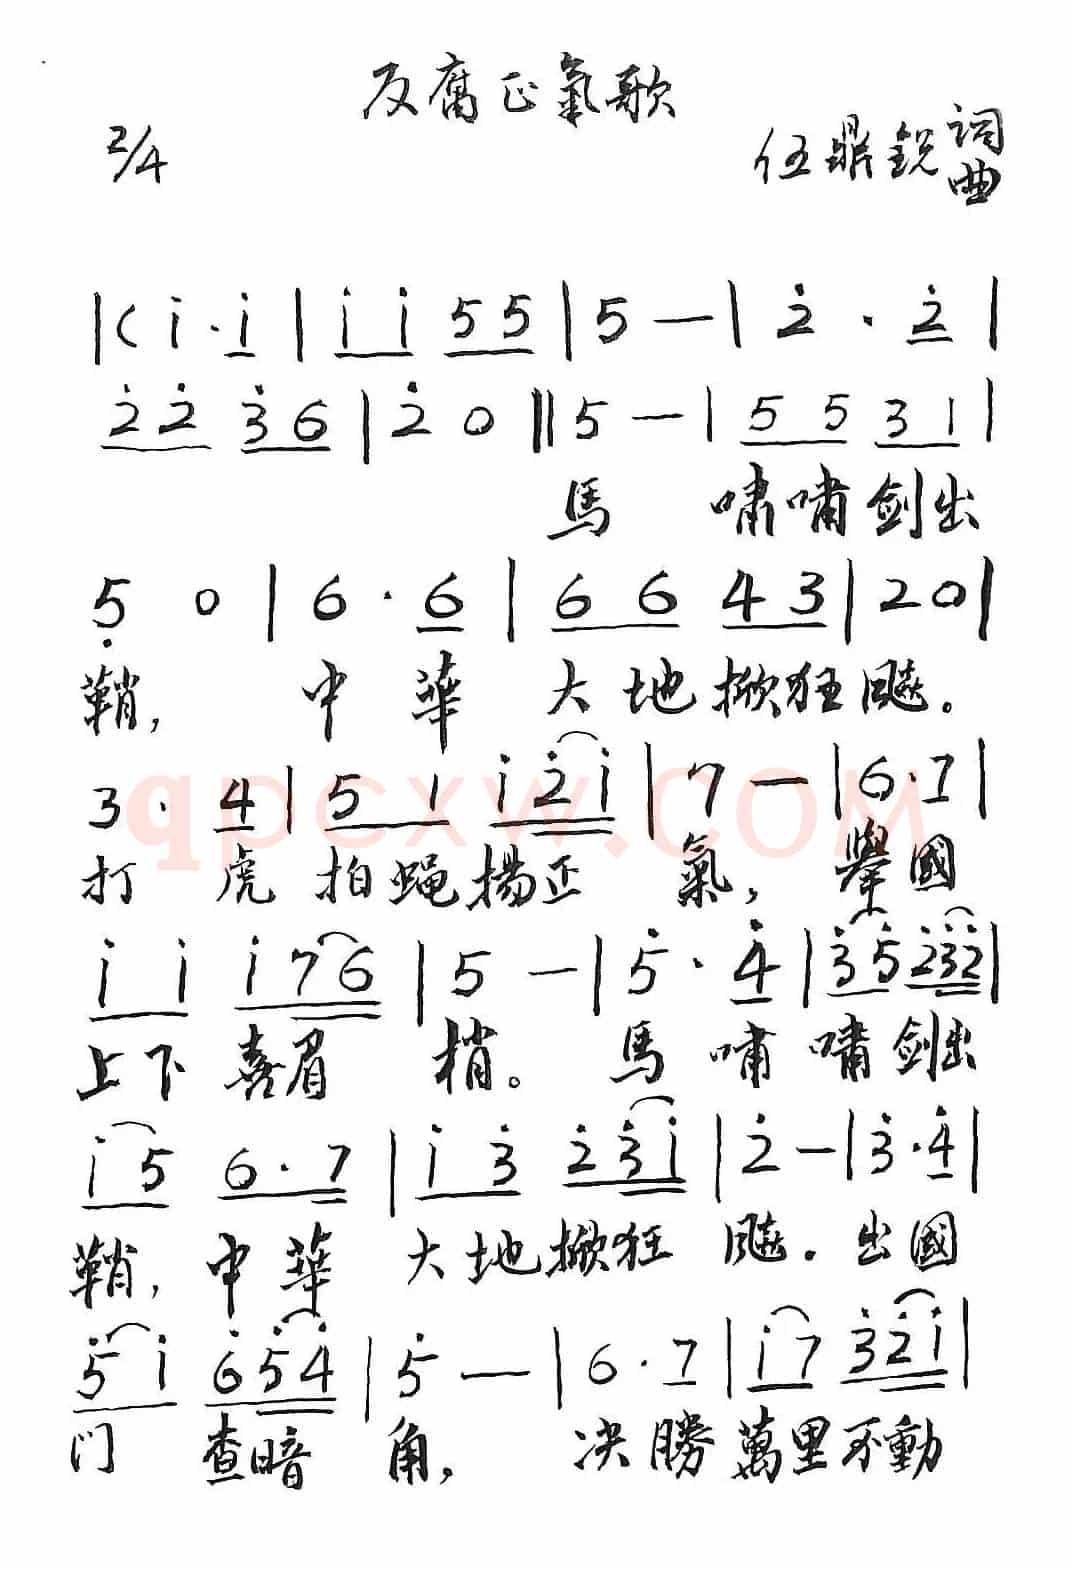 反腐正氣歌
2/4
伍鼎銳 詞曲
|( i · i | i i 5 5 | 5 — | 2 · 2 |
2 2 3 6 | 2 0 || 5 — | 5 5 3 1 |
馬 嘯嘯劍出
5 0 | 6 · 6 | 6 6 4 3 | 2 0 |
鞘, 中華 大地掀狂飈。
3 · 4 | 5 1 i 2 i | 7 — | 6 · 7 |
打虎 拍蝇揚正 氣, 舉國
i i i 7 6 | 5 — | 5 · 4 | 3 5 2 3 2 |
上下喜眉 梢。 馬 嘯 嘯劍出
i 5 6 · 7 | i 3 2 3 i | 2 — | 3 · 4 |
鞘, 中華 大地掀狂 飈. 出國
5 i 6 5 4 | 5 — | 6 · 7 | i 7 3 2 i |
门 查暗 角, 决勝萬里不動
qpcxw.com